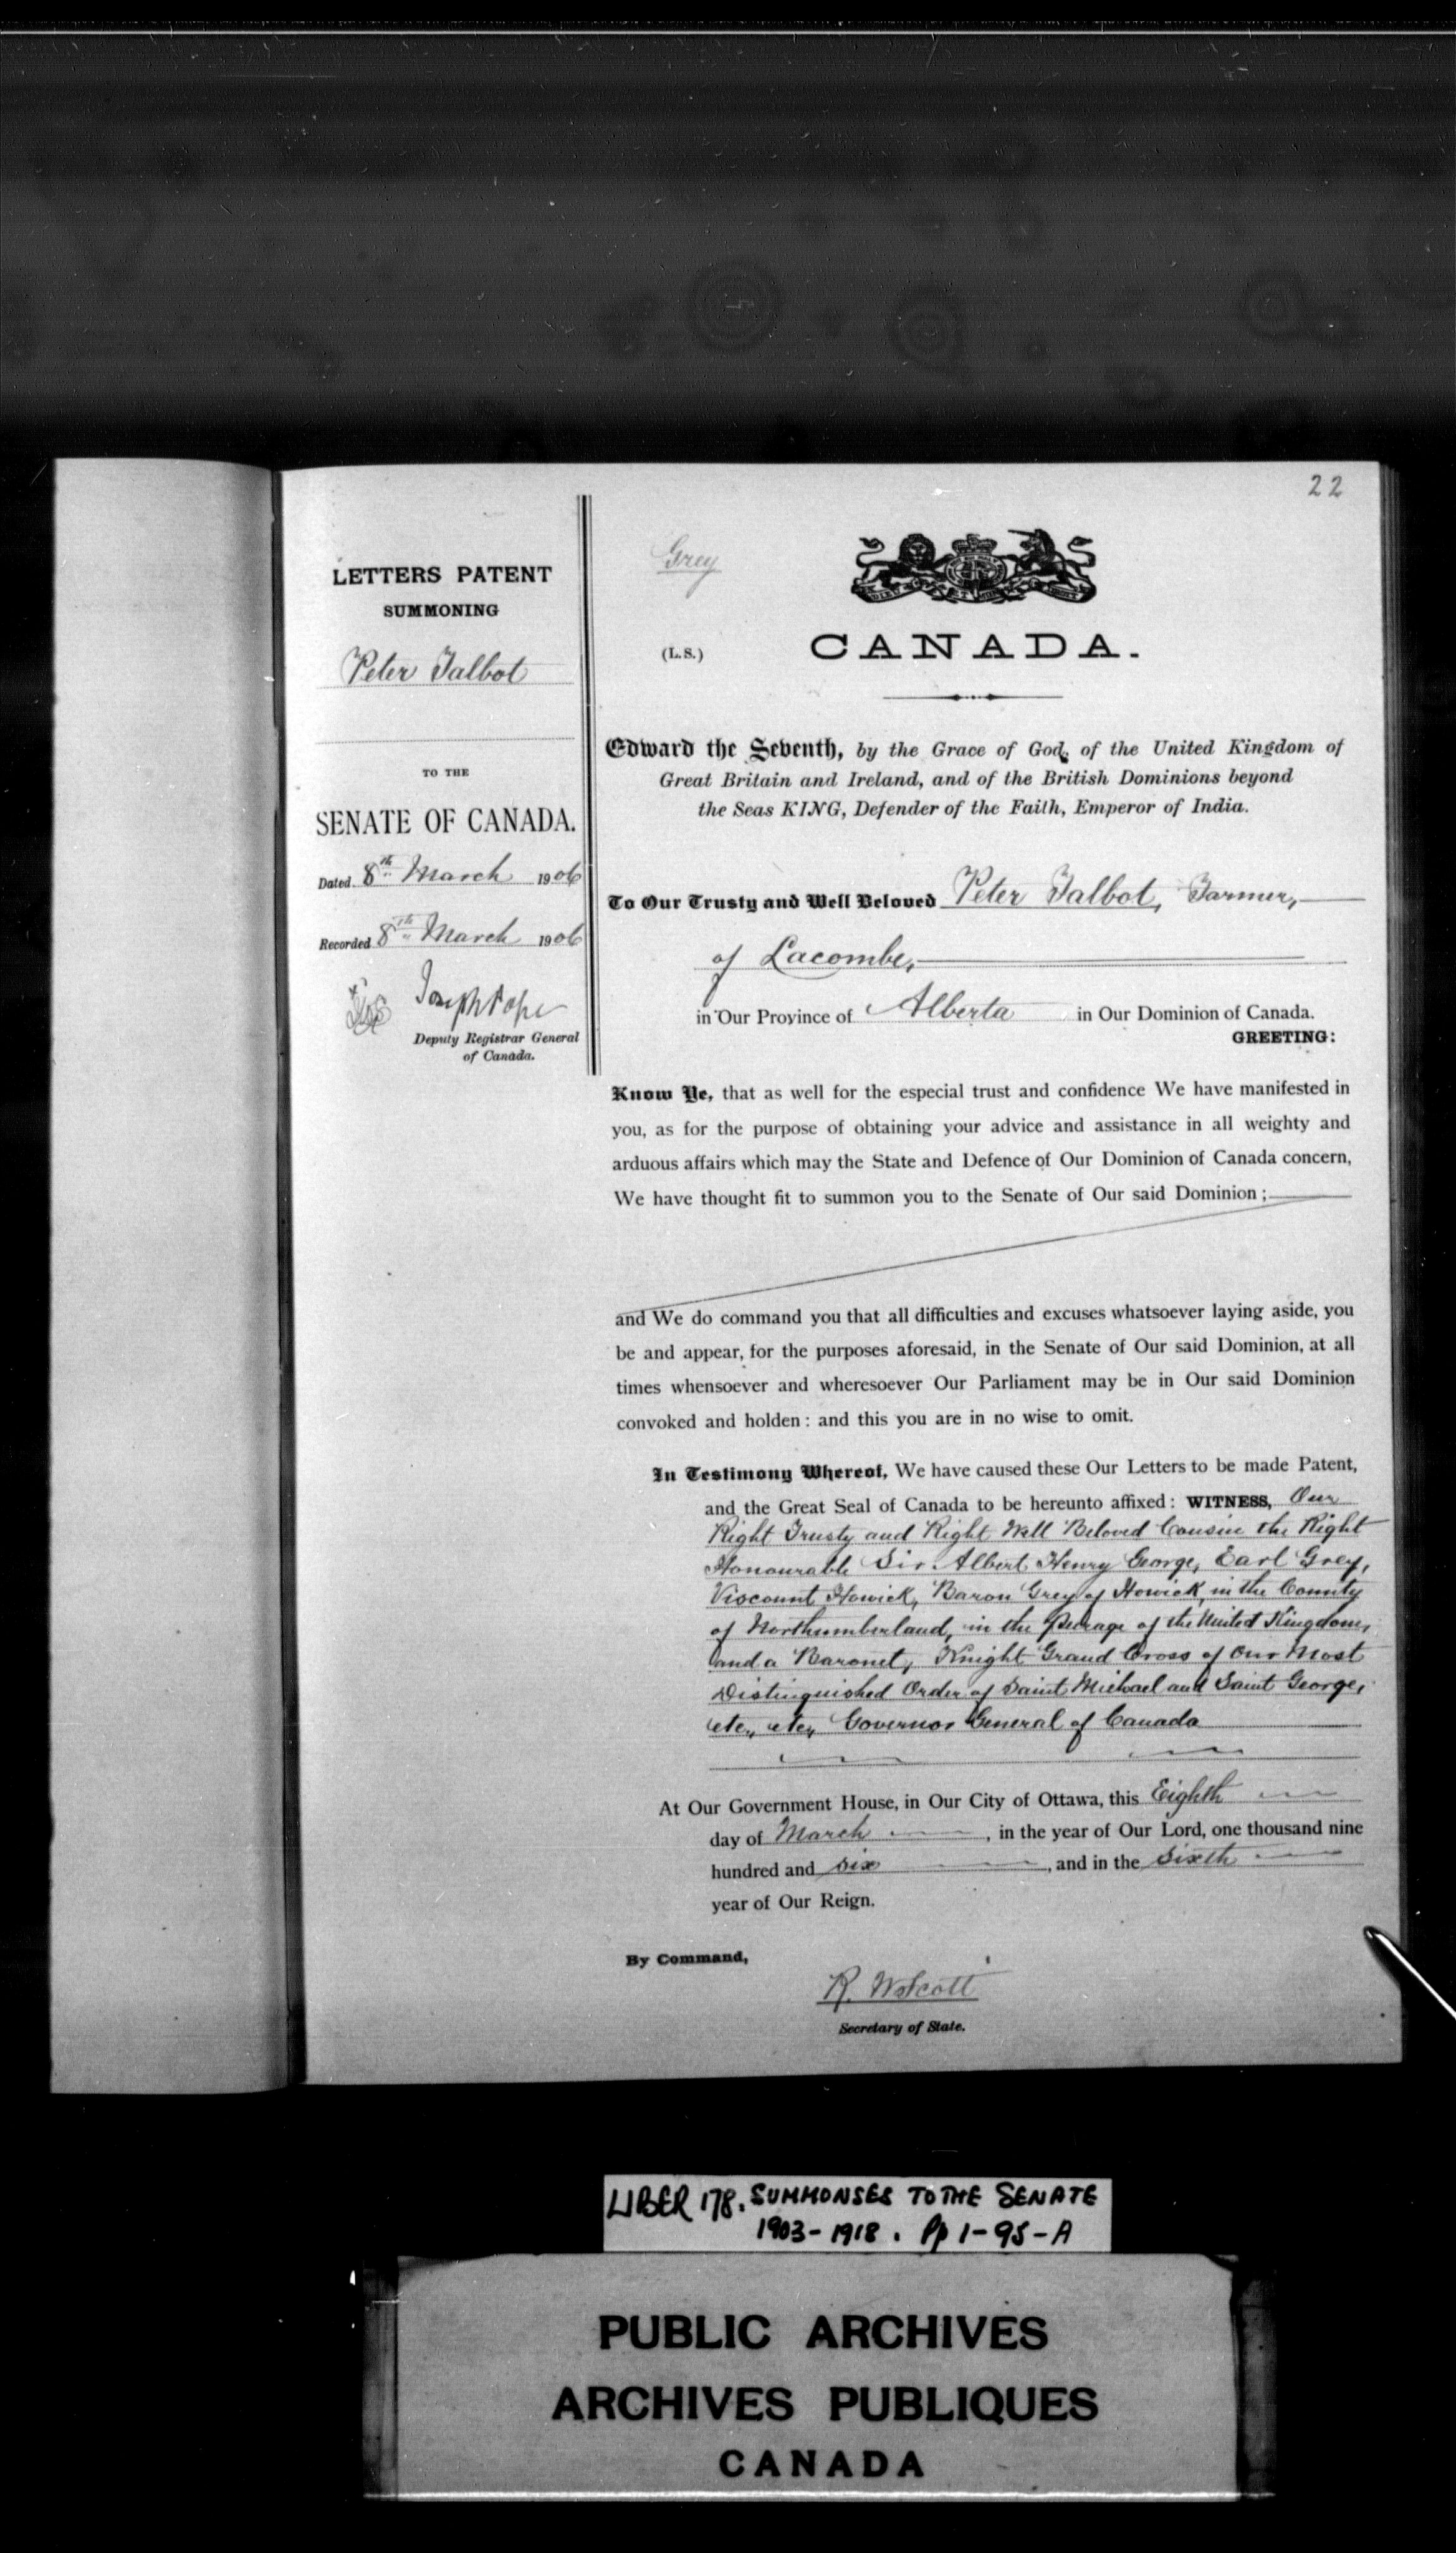 22
LETTERS PATENT
SUMMONING
Peter Talbot
TO THE
SENATE OF CANADA.
Dated 8th March 1906
Recorded 8th March 1906
Joseph Pope
Deputy Registrar General
of Canada.
Grey
(L.S.)
CANADA.
Edward the Seventh, by the Grace of God, of the United Kingdom of
Great Britain and Ireland, and of the British Dominions beyond
the Seas KING, Defender of the Faith, Emperor of India.
To Our Trusty and Well Beloved Peter Talbot, Farmer,
of Lacombe,
in Our Province of Alberta in Our Dominion of Canada.
GREETING:
Know Ye, that as well for the especial trust and confidence We have manifested in
you, as for the purpose of obtaining your advice and assistance in all weighty and
arduous affairs which may the State and Defence of Our Dominion of Canada concern,
We have thought fit to summon you to the Senate of Our said Dominion;
and We do command you that all difficulties and excuses whatsoever laying aside, you
be and appear, for the purposes aforesaid, in the Senate of Our said Dominion, at all
times whensoever and wheresoever Our Parliament may be in Our said Dominion
convoked and holden: and this you are in no wise to omit.
In Testimony Whereof, We have caused these Our Letters to be made Patent,
and the Great Seal of Canada to be hereunto affixed: WITNESS, Our
Right Trusty and Right Well Beloved Cousin the Right
Honourable Sir Albert Henry George, Earl Grey,
Viscount Howick, Baron Grey of Howick, in the County
of Northumberland, in the Peerage of the United Kingdom,
and a Baronet, Knight Grand Cross of Our Most
Distinguished Order of Saint Michael and Saint George,
etc., etc., Governor General of Canada
At Our Government House, in Our City of Ottawa, this Eighth
day of March, in the year of Our Lord, one thousand nine
hundred and six, and in the sixth
year of Our Reign.
By Command,
R. W. Scott
Secretary of State.
LIBER 178. SUMMONSES TO THE SENATE
1903-1918. Pp 1-95-A
PUBLIC ARCHIVES
ARCHIVES PUBLIQUES
CANADA